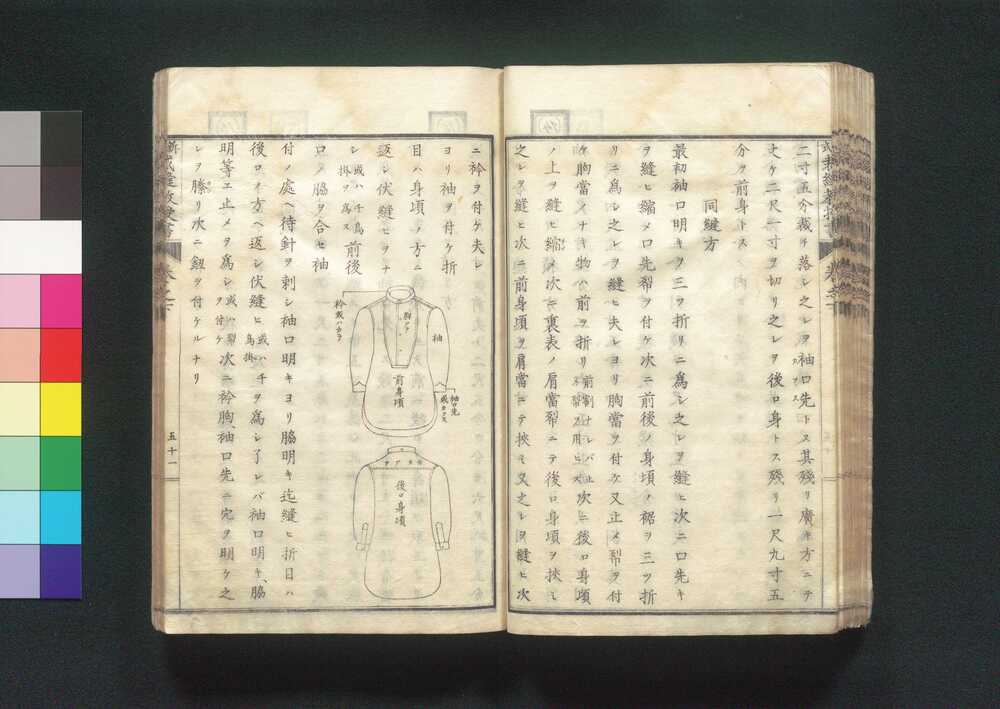 二寸五分裁リ落シ之レヲ袖口先トス其殘リ廣キ方ニテ
丈ケ二尺二寸ヲ切リ之レヲ後ロ身トス殘リ一尺九寸五
分ヲ前身トス
同縫方
最初袖口明キヲ三ツ折リニ爲シ之レヲ縫ヒ次ニ口先キ
ヲ縫ヒ縮メ口先裂ヲ付ケ次ニ前後ノ身頃ノ裾ヲ三ツ折
リニ爲シ之レヲ縫ヒ夫レヨリ胸當ヲ付ケ又止メ裂ヲ付
ケ胸當ノナキ物ハ前ヲ折リ 次ニ後ロ身頃
ノ上ヲ縫ヒ縮メ次ニ裏表ノ肩當裂ニテ後ロ身頃ヲ挾ミ
之レヲ縫ヒ次ニ前身頃ヲ肩當ニテ挾ミ又之レヲ縫ヒ次
ニ衿ヲ付ケ夫レ
ヨリ袖ヲ付ケ折
目ハ身頃ノ方ニ
返シ伏縫ヒヲナ
シ 或ハ千鳥掛ヲ爲ス 前後
ロノ脇ヲ合セ袖
付ノ處ヘ待針ヲ刺シ袖口明キヨリ脇明キ迄縫ヒ折目ハ
後ロイ方ヘ返シ伏縫ヒ 或ハ千鳥掛 ヲ爲シ了レバ袖口明キ、脇
明等エ止メヲ爲シ 或ハ裂ヲ付ケ 次ニ衿胸、袖口先ニ穴ヲ明ケ之
レヲ縢リ次ニ釦ヲ付ケルナリ
衿或ハカラ
胸アテ
袖
前身頃
袖口先
或カフス
カタアテ
後ロ身頃
五十一